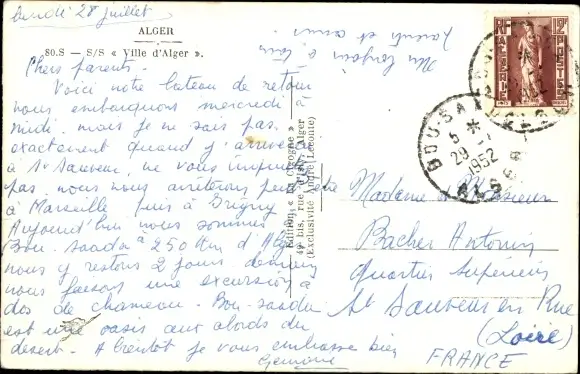 lundi 28 juillet
ALGER
80.S — S/S « Ville d'Alger ».
Chers parents.
Voici notre bateau de retour
nous embarquons mercredi à
midi. mais je ne sais pas
exactement quand j'arriverai
à St Sauveur, ne vous inquiétez
pas nous nous arrêterons peut être
à Marseille puis à Grigny
Aujourd'hui nous sommes
Bou-saada à 250 km d'Alger
nous y restons 2 jours demain
nous faisons une excursion à
dos de chameau. Bou-saada
est une oasis aux abords du
desert. A bientôt je vous embrasse bien
Germaine
bonjour à tous
parents et amis
Edition « La Cigogne »
49 bis, rue d'Isly, Alger
(Exclusivité André Leconte)
RF
12F
ALGERIE
POSTES
BOU-SAADA
5 *
29 - 7
1952
ALGER
Madame et Monsieur
Bacher Antonin
Quartier Supérieur
St Sauveur en Rue
(Loire)
FRANCE